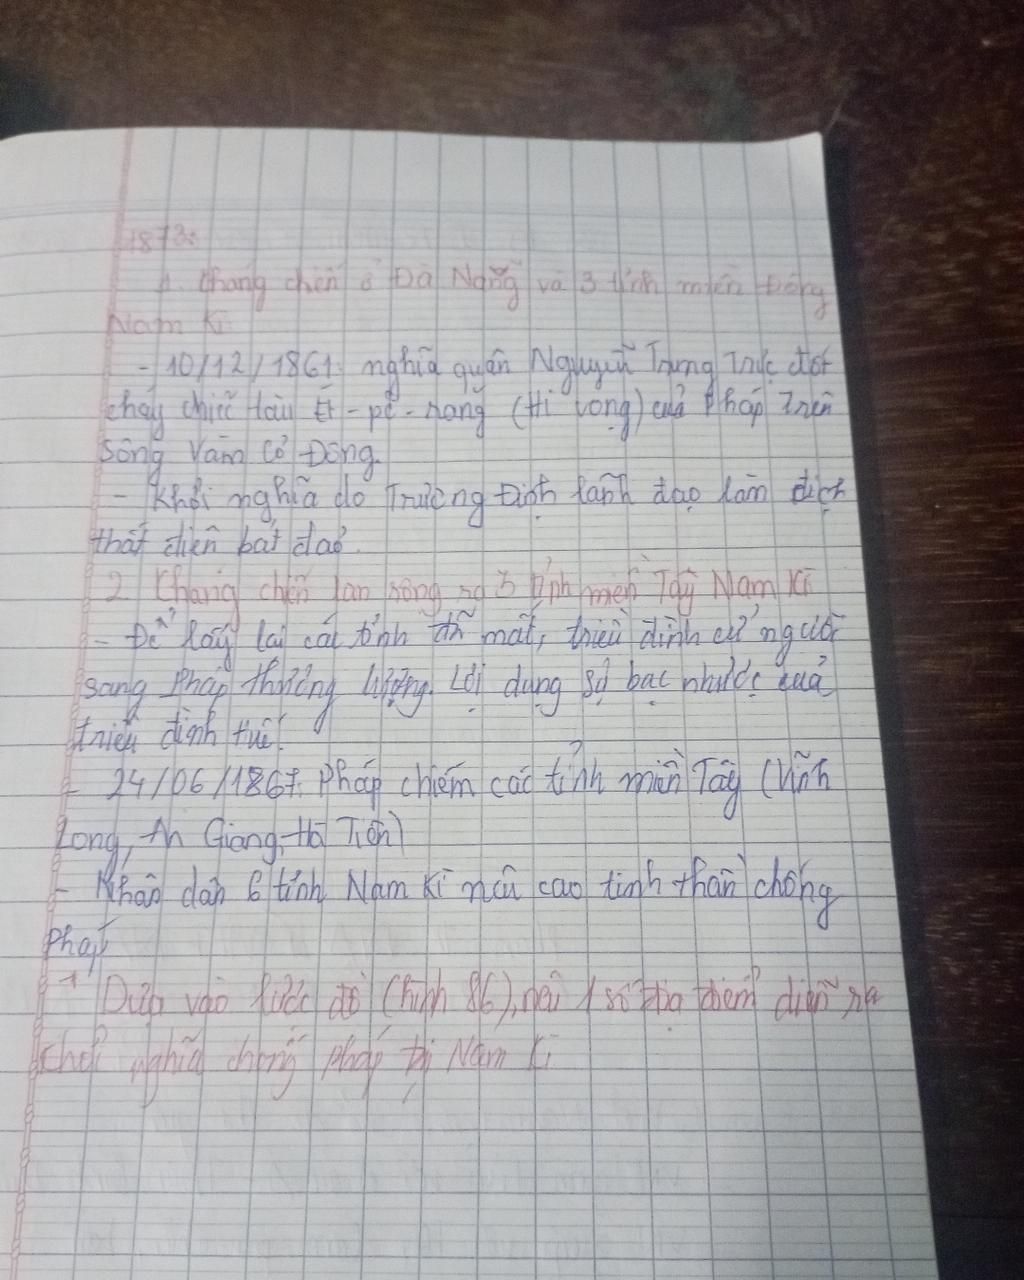 1873:
1. Kháng chiến ở Đà Nẵng và 3 tỉnh miền Đông
Nam Kì
- 10/12/1861: nghĩa quân Nguyễn Trung Trực đốt
cháy chiếc tàu Ét-pê-răng (Hi vọng) của Pháp trên
sông Vàm Cỏ Đông.
- Khởi nghĩa do Trương Định lãnh đạo làm địch
thất điên bát đảo.
2. Kháng chiến lan rộng ra 3 tỉnh miền Tây Nam Kì
- Để lấy lại các tỉnh đã mất, triều đình cử người
sang Pháp thương lượng. Lợi dụng sự bạc nhược của
triều đình Huế.
- 24/06/1867: Pháp chiếm các tỉnh miền Tây (Vĩnh
Long, An Giang, Hà Tiên)
- Nhân dân 6 tỉnh Nam Kì nêu cao tinh thần chống
Pháp
+ Dựa vào lược đồ (hình 86), nêu 1 số địa điểm diễn ra
khởi nghĩa chống Pháp tại Nam Kì